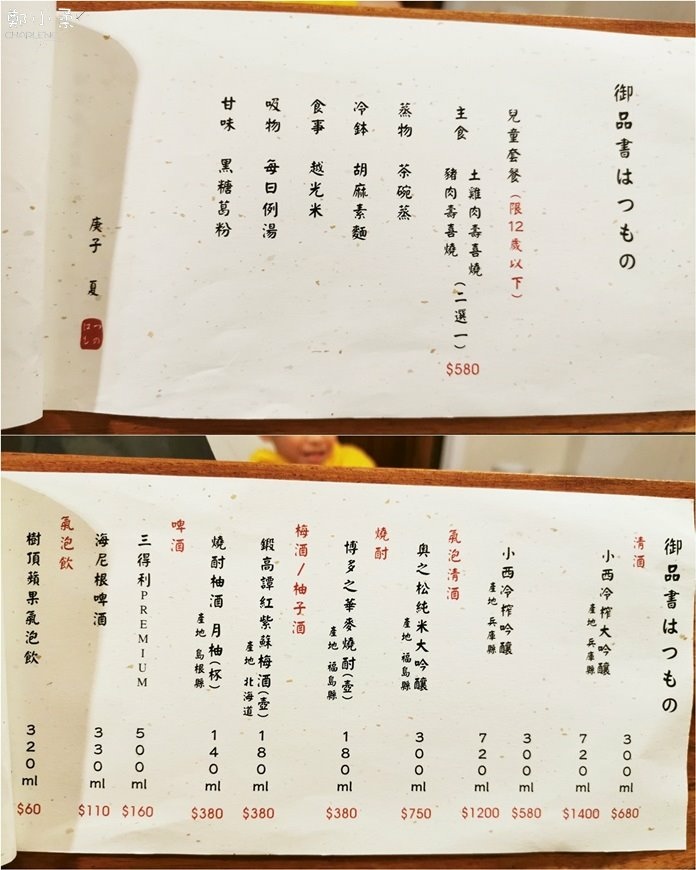 鄭小柔
CHARLENE
御品書はつもの
兒童套餐(限12歲以下)
主食 土雞肉壽喜燒
豬肉壽喜燒 (二選一) $580
蒸物 茶碗蒸
冷鉢 胡麻素麵
食事 越光米
吸物 每日例湯
甘味 黑糖葛粉
庚子 夏
はつもの
御品書はつもの
清酒
小西冷榨大吟釀
產地 兵庫縣
300ml $680
720ml $1400
小西冷榨吟釀
產地 兵庫縣
300ml $580
720ml $1200
氣泡清酒
奧之松純米大吟釀
產地 福島縣
300ml $750
燒酎
博多之華麥燒酎(壺)
產地 福島縣
180ml $380
梅酒/柚子酒
鍛高譚紅紫蘇梅酒(壺)
產地 北海道
180ml $380
燒酎柚酒 月柚(杯)
產地 島根縣
140ml $380
啤酒
三得利PREMIUM 500ml $160
海尼根啤酒 330ml $110
氣泡飲
樹頂蘋果氣泡飲 320ml $60